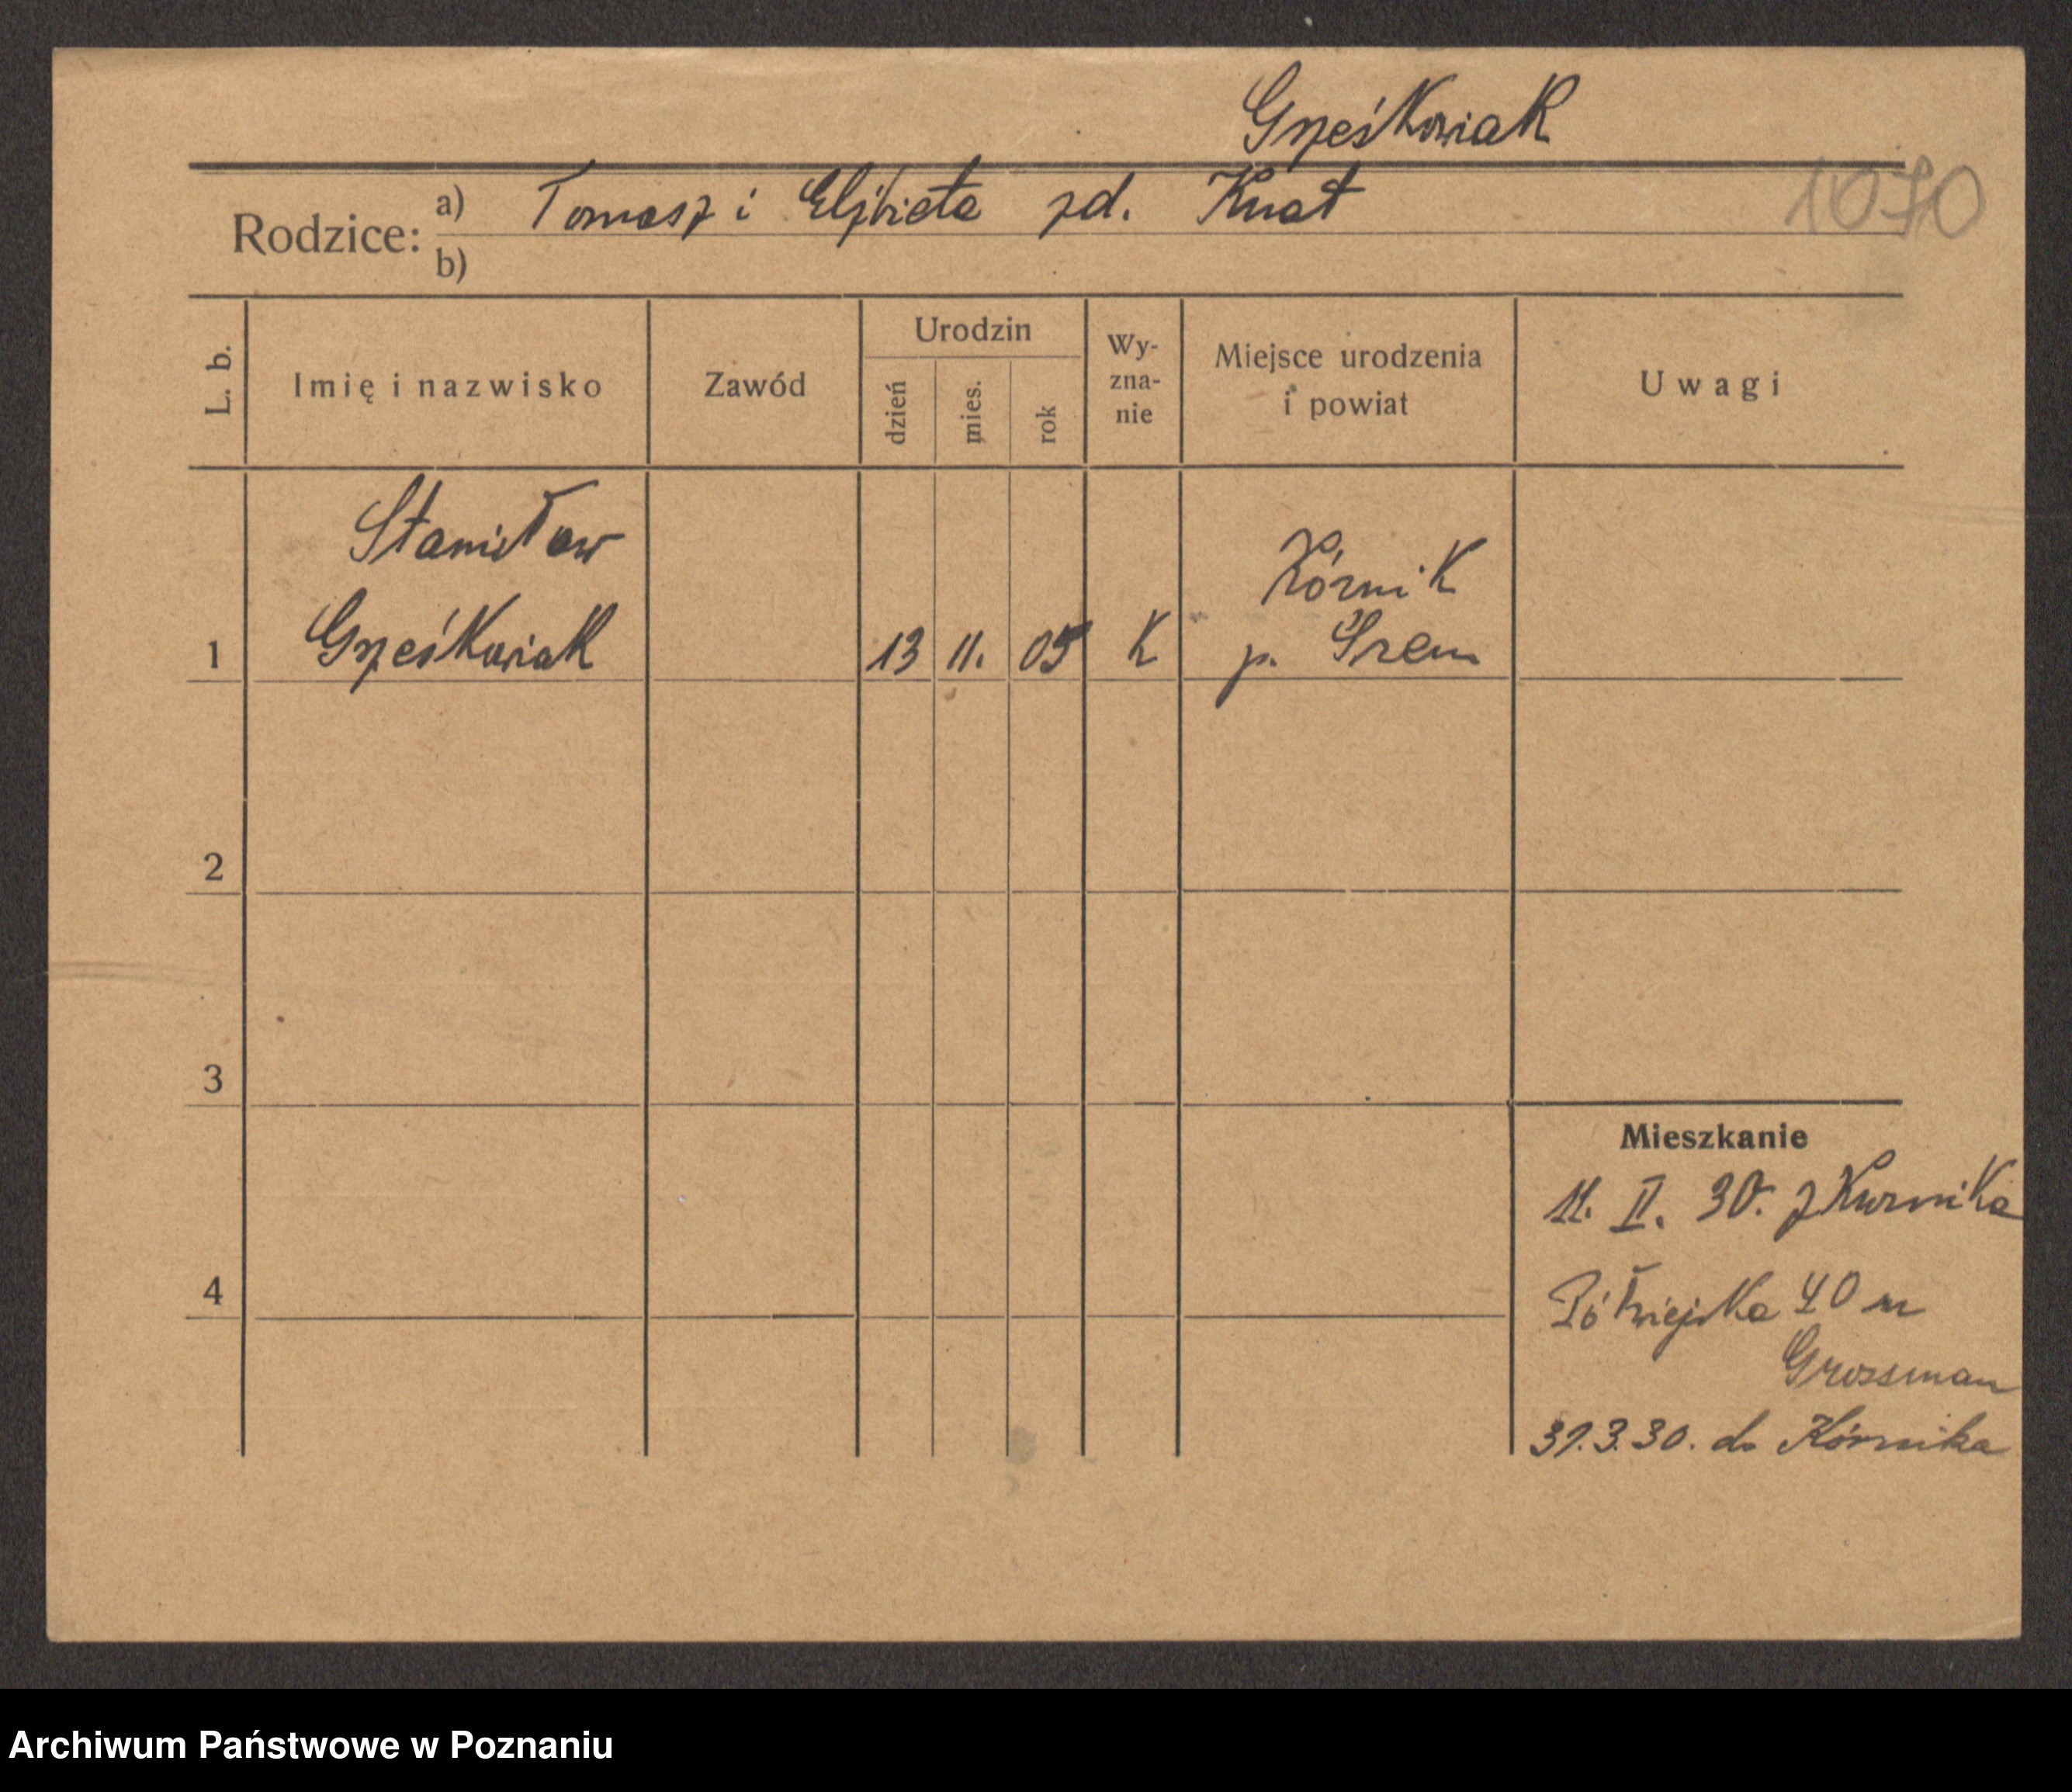 Grześkowiak
Rodzice: a) Tomasz i Elżbieta zd. Knat
1070
b)
L. b. Imię i nazwisko Zawód Urodzin dzień mies. rok Wy-zna-nie Miejsce urodzenia i powiat Uwagi
Stanisław
Kórnik
1 Grześkowiak 13 11. 05 K p. Śrem
2
3
Mieszkanie
11. II. 30. z Kurnika
4
Półwiejska 40 m
Grossman
31.3.30. do Kórnika
Archiwum Państwowe w Poznaniu